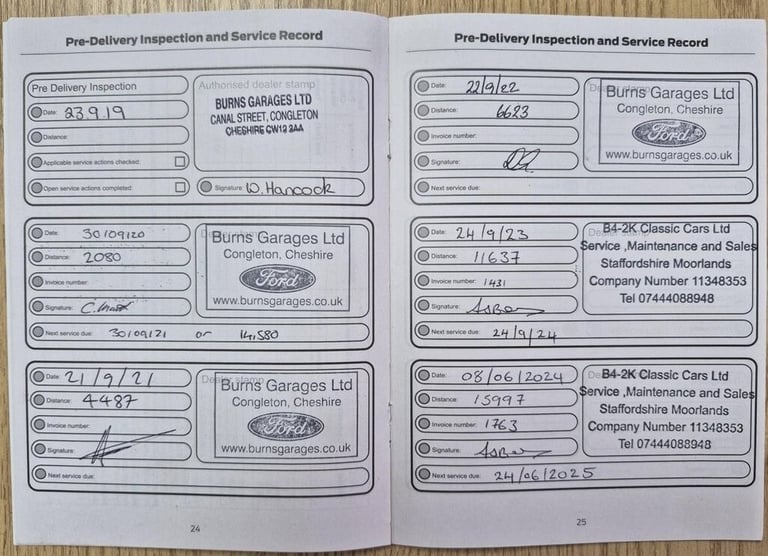 Pre-Delivery Inspection and Service Record
Pre Delivery Inspection
Date: 23.9.19
Distance:
Applicable service actions checked:
Open service actions completed:
Authorised dealer stamp
BURNS GARAGES LTD
CANAL STREET, CONGLETON
CHESHIRE CW12 3AA
Signature: W. Hancock
Date: 30/09/20
Distance: 2080
Invoice number:
Signature:
Burns Garages Ltd
Congleton, Cheshire
Ford
www.burnsgarages.co.uk
Next service due: 30/09/21 or 14,580
Date: 21/9/21
Distance: 4487
Invoice number:
Signature:
Dealer stamp
Burns Garages Ltd
Congleton, Cheshire
Ford
www.burnsgarages.co.uk
Next service due:
24
Pre-Delivery Inspection and Service Record
Date: 22/9/22
Distance: 6623
Invoice number:
Signature:
Burns Garages Ltd
Congleton, Cheshire
Ford
www.burnsgarages.co.uk
Next service due:
Date: 24/9/23
Distance: 11637
Invoice number: 1431
Signature:
B4-2K Classic Cars Ltd
Service ,Maintenance and Sales
Staffordshire Moorlands
Company Number 11348353
Tel 07444088948
Next service due: 24/9/24
Date: 08/06/2024
Distance: 15997
Invoice number: 1763
Signature:
B4-2K Classic Cars Ltd
Service ,Maintenance and Sales
Staffordshire Moorlands
Company Number 11348353
Tel 07444088948
Next service due: 24/06/2025
25